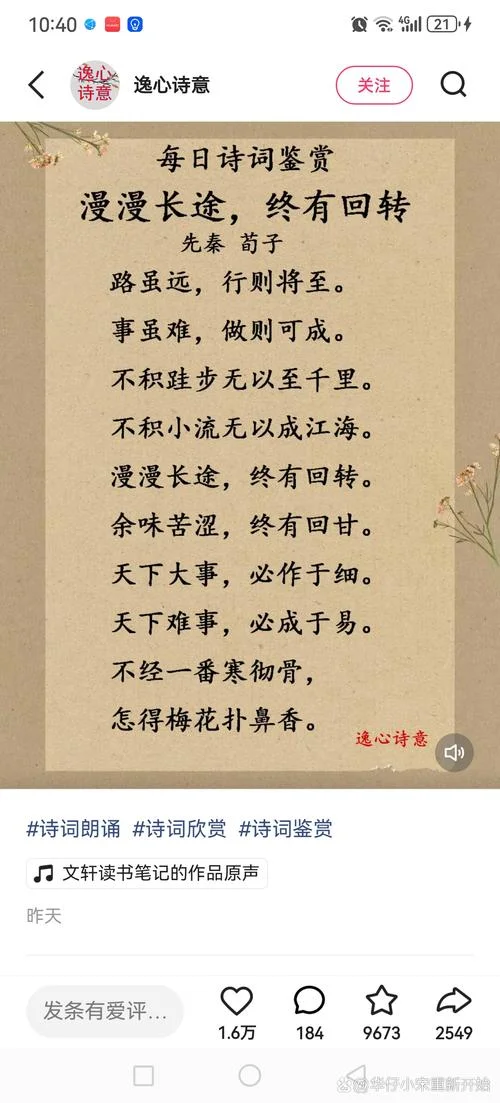 10:40 4G 21
逸心诗意 逸心诗意 关注
每日诗词鉴赏
漫漫长途，终有回转
先秦 荀子
路虽远，行则将至。
事虽难，做则可成。
不积跬步无以至千里。
不积小流无以成江海。
漫漫长途，终有回转。
余味苦涩，终有回甘。
天下大事，必作于细。
天下难事，必成于易。
不经一番寒彻骨，
怎得梅花扑鼻香。
逸心诗意
#诗词朗诵 #诗词欣赏 #诗词鉴赏
文轩读书笔记的作品原声
昨天
发条有爱评... 1.6万 184 9673 2549
@华仔小宋重新开始